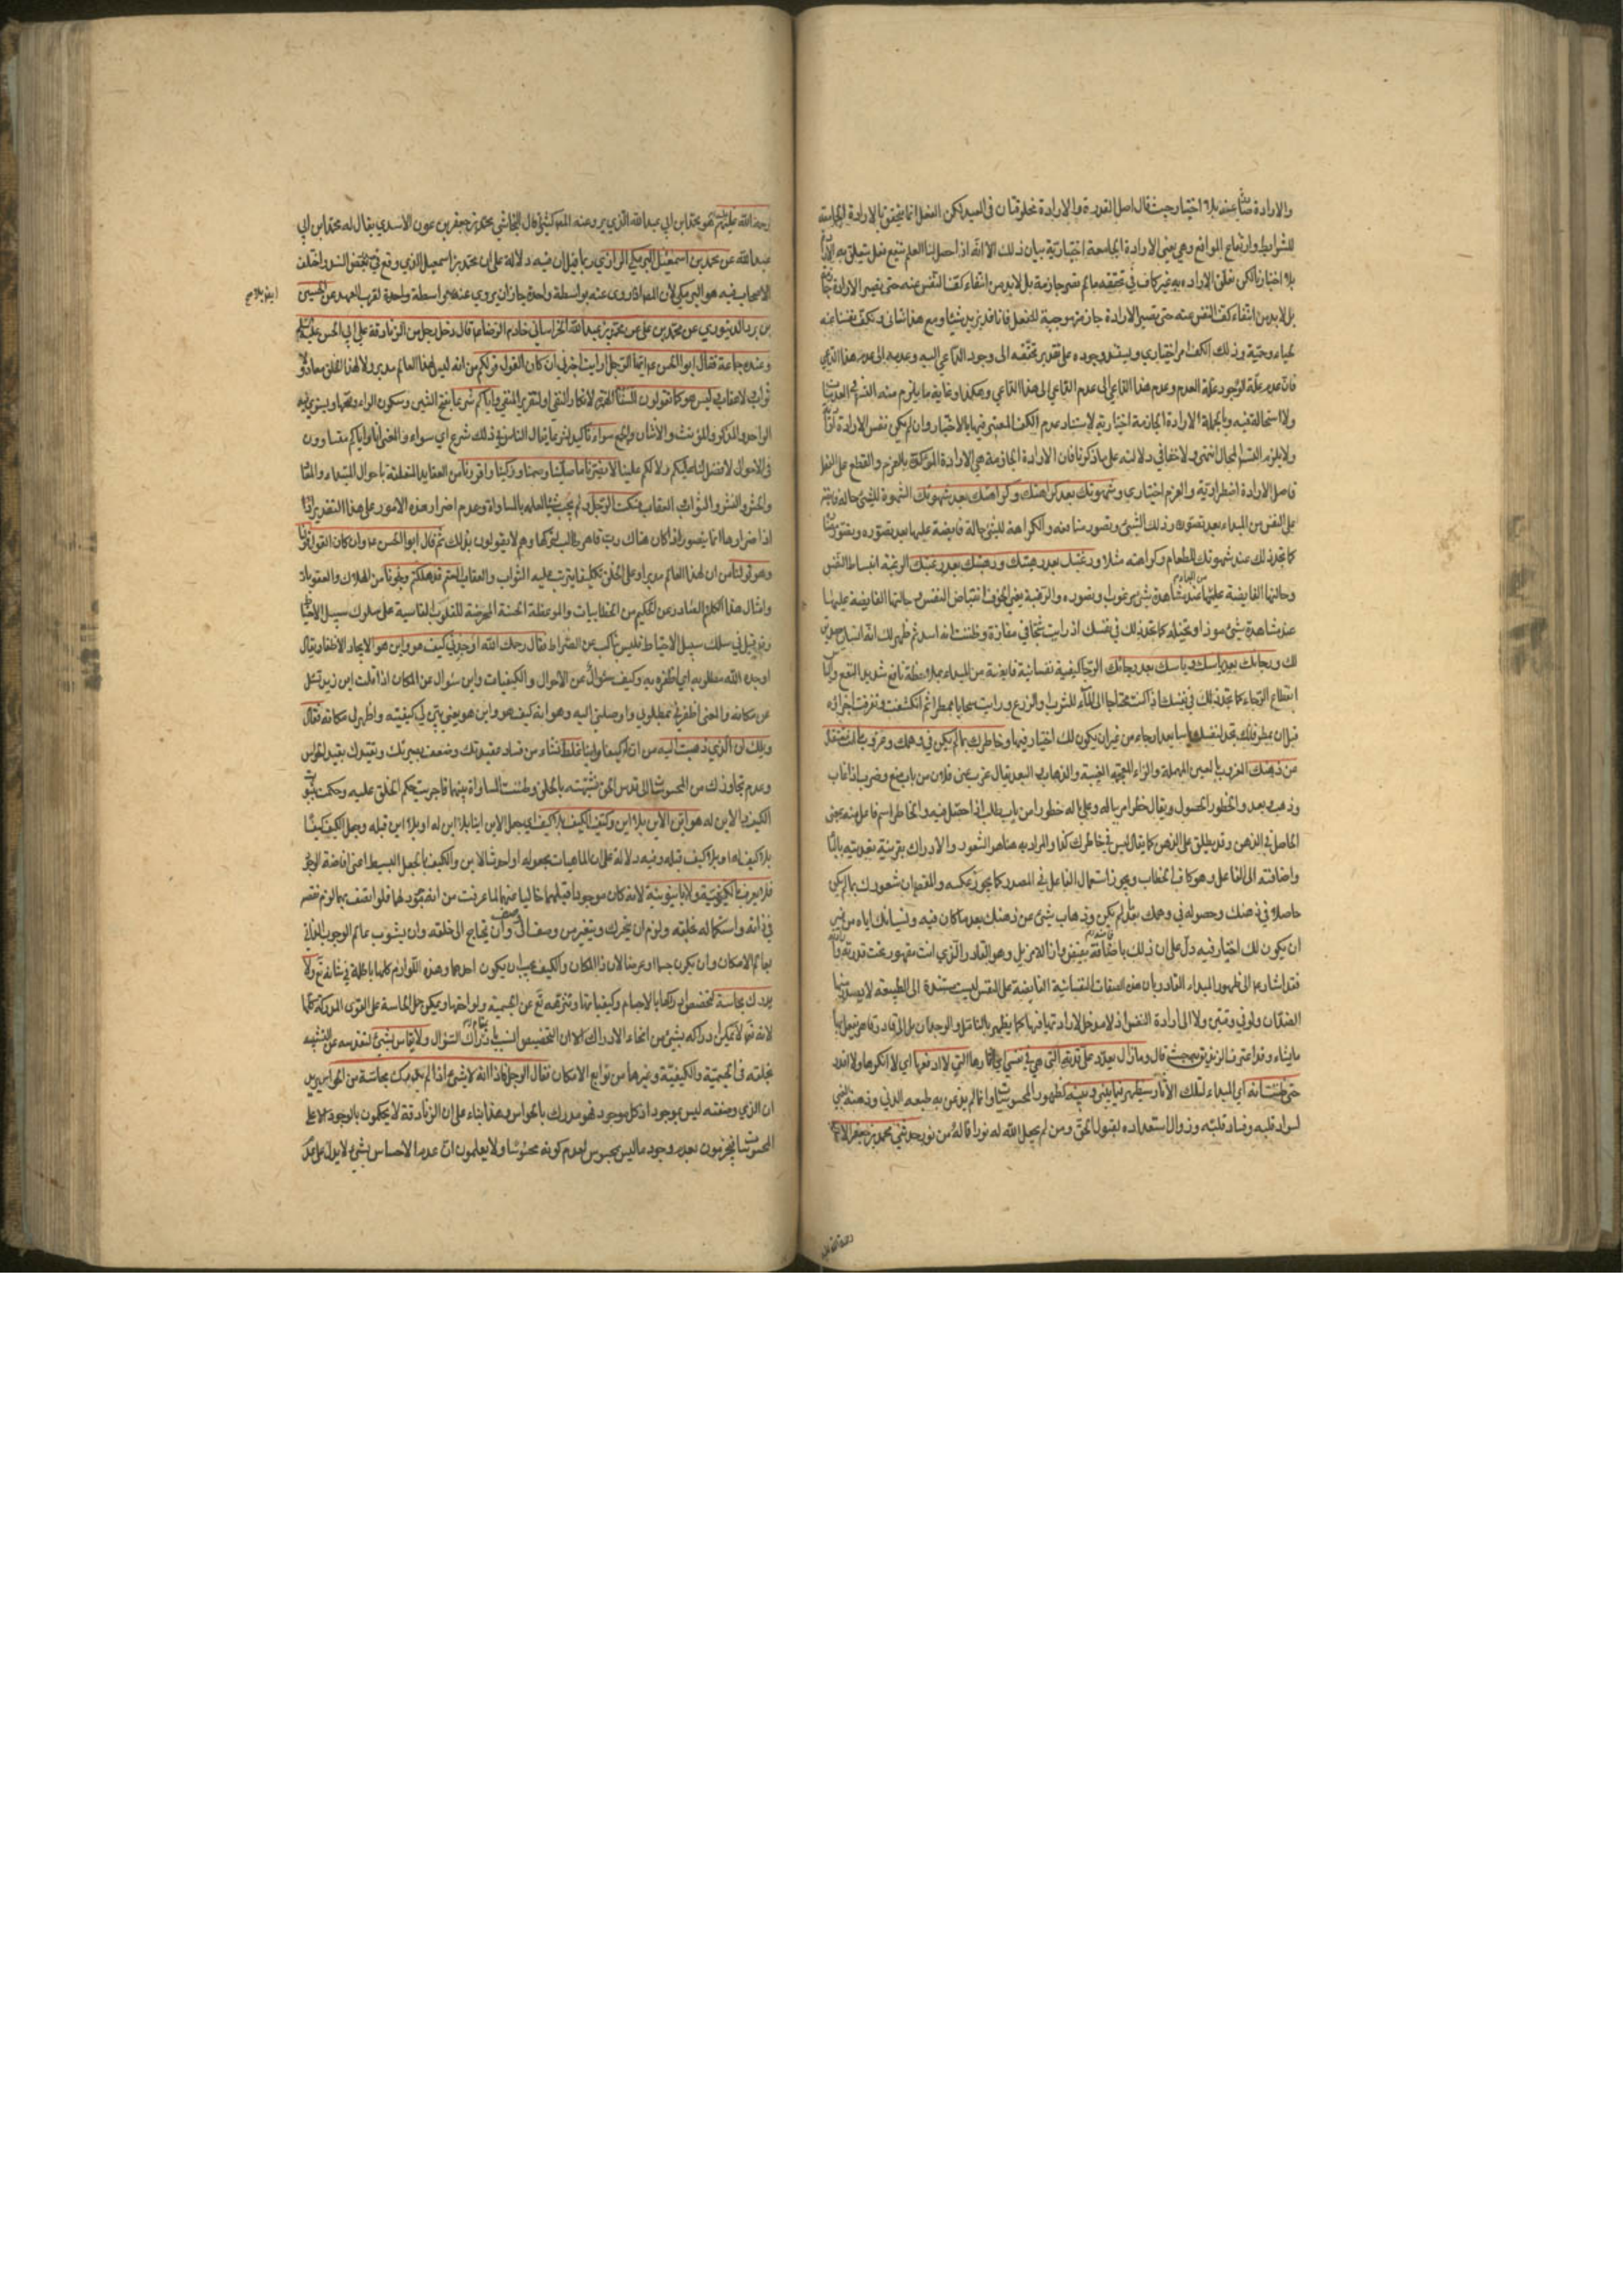 والارادة صادرة عنه بلا اختيار حيث قال اصل القدرة والارادة مخلوقتان في العبد لكن الفعل انما يتحقق بالارادة الجامعة
للشرايط وارتفاع الموانع وهي يعني الارادة الجامعة اختيارية بيان ذلك الا انه اذا حصل لنا العلم بنفع فعل يتعلق به الارادة
بلا اختيار لكن تعلق الارادة به غير كاف في تحققه ما لم تصر جازمة بل لا بد من انتفاء كف النفس عنه حتى تصير الارادة جازمة
بل لا بد من انتفاء كف النفس عنه حتى تصير الارادة جازمة موجبة للفعل فانا قد نريد شيئا ومع هذا شاني ونكف نفسنا عنه
لحياء وحمية وذلك الكف امر اختياري ويستند وجوده على تقدير تحققه الى وجود الداعي اليه وعدمه الى عدم هذا الداعي
فان عدم علة الوجود علة العدم وعدم هذا الداعي الى عدم الداعي الى هذا الداعي وهكذا وغاية ما يلزم منه التسلسل في العدميات
ولا استحالة فيه وبالجملة الارادة الجازمة اختيارية لاستناد عدم الكف المعتبر فيها بالاختيار وان لم يكن نفس الارادة
ولا يلزم التسلسل المحال انتهى ولا خفا في دلالته على ما ذكرنا فان الارادة الجازمة هي الارادة المؤكدة بالعزم والقطع على الفعل
فاصل الارادة اضطرارية والعزم اختياري وشهوتك بعد كراهتك وكراهتك بعد شهوتك الشهوة للشيء حالة فايضة
على النفس من المبداء بعد تصورك وذلك الشيء وتصور منافعه والكراهة للشيء حالة فايضة عليها بعد تصوره وتصور
كما تجد ذلك عند شهوتك للطعام وكراهته مثلا ورغبتك بعد رهبتك ورهبتك بعد رغبتك الرغبة انبساط النفس
وحالتها الفايضة عليها عند مشاهدة شيء مرغوب وتصوره والرهبة يعني الخوف انقباض النفس وحالتها الفايضة عليها
عند مشاهدة شيء موذ او تخيله كما تجد ذلك في نفسك اذ رايت شخصا في مفازة وظننت انه اسد ثم ظهر لك انه انسان
لك ورجائك بعد ياسك وياسك بعد رجائك الرجا كيفية نفسانية فايضة من المبداء بملاحظة نافع شديد النفع
انقطاع الرجاء كما تجد ذلك في نفسك اذ كنت محتاجا الى الماء للشرب والزرع ورايت سحابا ممطرا ثم انكشفت وتفرقت اجزاؤه
قبل ان يمطر فانك تجد لنفسك ياسا بعد رجاء من غير ان يكون لك اختيار فيهما وخاطرك بما لم يكن في وهمك وعزوب ما انت معتقده
عن ذهنك العزوب بالعين المهملة والزاء المعجمة الغيبة والذهاب البعد يقال عزب عني فلان من باب منع وضرب اذا غاب
وذهب وبعد والخطور الحصول ويقال خطر امر بباله وعلى باله خطورا من باب طلب اذا حصل فيه والخاطر اسم فاعل منه يعني
الحاصل في الذهن وقد يطلق على الذهن كما يقال ليس في خاطرك كذا والمراد به هنا هو الشعور والادراك بقرينة تعديته بالباء
واضافته الى الفاعل وهو كاف الخطاب ويجوز استعمال الفاعل في المصدر كما يجوز عكسه والمقصود ان شعورك بما لم يكن
حاصلا في ذهنك وحصوله في وهمك بعد ان لم يكن وذهاب شيء عن ذهنك بعد ما كان فيه ونسيانك اياه من غير
ان يكون لك اختيار فيه دل على ان ذلك بافاضة مفيض وازالة مزيل وهو القادر الذي انت مقهور تحت قدرته
فقد اشار عم الى ظهور المبداء القادر بان هذه الصفات النفسانية الفايضة على النفس ليست مستندة الى الطبيعة لا
الضدان ولا الى ارادة النفس اذ لا مدخل لارادتها فيها كما يظهر بالتامل والوجدان بل الى قادر قاهر يفعل بها
ما يشاء وقد اعترف الزنديق به حيث قال وما زال يعدد على قدرته التي هي في نفسي اي اثارها التي لا ادفعها اي لا انكرها ولا اقدر
حتى ظننت انه اي المبداء لتلك الاثار سيظهر فيما بيني وبينه كظهور المحسوسات وانما لم يؤمن به طبعه الدني وذهنه الغبي
لسواد قلبه وفساد قلبه وزوال استعداده لقبول الحق ومن لم يجعل الله له نورا فما له من نور حدثني محمد بن جعفر الاسدي
رحمة الله عليه
رحمه الله عليه هو محمد ابن ابي عبد الله الذي يروي عنه المصنف كثيرا قال النجاشي محمد بن جعفر بن عون الاسدي يقال له محمد ابن ابي
عبد الله عن محمد بن اسمعيل البرمكي الرازي ربما قيل ان فيه دلالة على ان محمد بن اسمعيل الذي وقع في بعض السند واختلف
الاصحاب فيه هو البرمكي لان المصنف اذا روى عنه بواسطة واحدة جاز ان يروي عنه بغير واسطة واحدة لقرب العهد عن الحسين
بن برد الدينوري عن محمد بن علي عن محمد بن عبد الله الخراساني خادم الرضا عم قال دخل رجل من الزنادقة على ابي الحسن عليه السلم
وعنده جماعة فقال ابو الحسن عم ايها الرجل ارايت اخبرني ان كان القول قولكم من انه ليس لهذا العالم مدبر ولا لهذا الخلق معاد ولا
ثواب ولا عقاب وليس هو كما تقولون السنا الهمزة لانكار النفي او لتقرير المنفي واياكم شرعا بفتح الشين وسكون الراء وفتحها ويستوي فيه
الواحد والمذكر والمؤنث والاثنان والجمع سواء تاكيد لشرعا يقال الناس في ذلك شرع اي سواء والمعنى انا واياكم متساوون
في الاحوال لا فضل لنا عليكم ولا لكم علينا لا يضرنا ما صلينا وصمنا وزكينا واقررنا من العقايد المتعلقة باحوال المبداء والمعاد
والحشر والنشر والثواب والعقاب فسكت الرجل ولم يجب شيئا لعلمه بالمساواة وعدم اضرار هذه الامور على هذا التقدير
اذ اضرارها انما يتصور اذا كان هناك رب قاهر يطالب بتركها وهم لا يقولون بذلك ثم قال ابو الحسن عم وان كان القول قولنا
وهو قولنا من ان لهذا العالم مدبرا وعلى الخلق تكليفا يترتب عليه الثواب والعقاب الستم قد هلكتم ونجونا من الهلاك والعقوبات
وامثال هذا الكلام الصادر عن الحكيم من الخطابيات والموعظة الحسنة المحرضة للقلوب القاسية على سلوك سبيل الاحتياط
وقد قيل في سلك سبيل الاحتياط فليس بناكب عن الصراط فقال رحمك الله اوجدني كيف هو واين هو الايجاد الاظفار يقال
اوجده الله مطلوبه اي اظفره به وكيف سؤال عن الاحوال والكيفيات واين سؤال عن المكان اذا قلت اين زيد تسئل
عن مكانه والمعنى اظفرني بمطلوبي واوصلني اليه وهو انه كيف هو واين هو يعني بين لي كيفيته واظهر لي مكانه فقال
ويلك ان الذي ذهبت اليه من ان له كيفا واينا غلط نشاء من فساد عقيدتك وضعف بصيرتك وتقيدك بقيد الحواس
وعدم تجاوزك من المحسوسات الى قدس الحق فشبهته بالخلق وظننت المساواة بينهما فاجريت حكم الخلق عليه وحكمت بثبوت
الكيف والاين له هو اين الاين بلا اين وكيف الكيف بلا كيف اي جعل الاين اينا بلا اين له او بلا اين قبله وجعل الكيف كيفا
بلا كيف له او بلا كيف قبله وفيه دلالة على ان الماهيات مجعولة او احدث الاين والكيف بالجعل البسيط اعني افاضة الوجود
فلا يعرف بالكيفوفية ولا باينونية لانه كان موجودا قبلهما خاليا عنهما لما عرفت من انه موجد لهما فلو اتصف بهما لزم نقصه
في ذاته واستكماله بخلقه ولزم ان يتحرك ويتغير من وصف الى وصف وان يحتاج الى خلقه وان يشوب عالم الوجوب الذاتي
بعالم الامكان وان يكون جسما او عرضا لان ذا المكان والكيف يجب ان يكون احدهما وهذه اللوازم كلها باطلة في شانه تع ولا
يدرك بحاسة لتخصص ادراكها بالاجسام وكيفياتها وتنزهه تع عن الجسمية ولواحقها ويمكن حمل الحاسة على القوى المدركة كلها
لانه تع لا يمكن ادراكه بشيء من انحاء الادراك الا ان التخصيص انسب بالسؤال ولا يقاس بشيء لتقدسه عن التشبيه
بخلقه في الجسمية والكيفية وغيرها من توابع الامكان فقال الرجل فاذا انه لا شيء اذا لم يدرك بحاسة من الحواس يريد
ان الذي وصفته ليس بموجود اذ كل موجود فهو مدرك بالحواس وهذا بناء على ان الزنادقة لا يحكمون بالوجود الا على
المحسوسات فيجزمون بعدم وجود ما ليس بمحسوس لعدم كونه محسوسا ولا يعلمون ان عدم الاحساس بشيء لا يدل على عدم